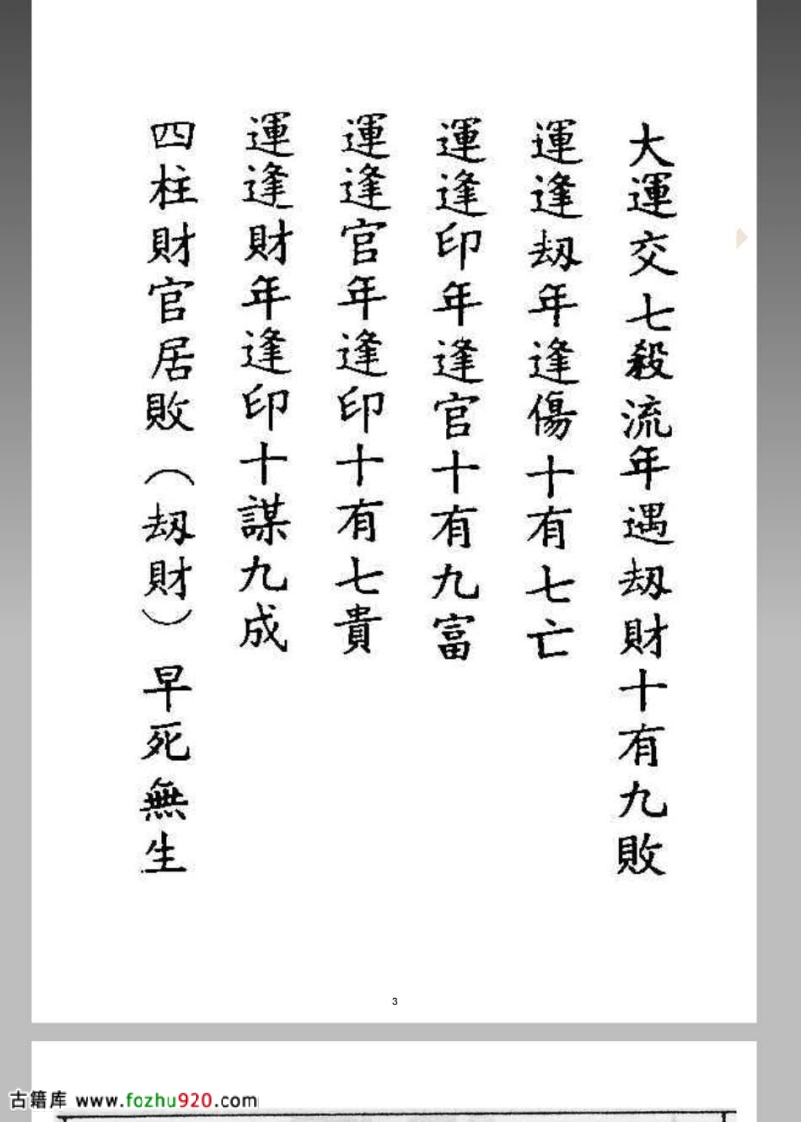 大運交七殺流年遇刼財十有九敗
運逢刼年逢傷十有七亡
運逢印年逢官十有九富
運逢官年逢印十有七貴
運逢財年逢印十謀九成
四柱財官居敗（刼財）早死無生
3
古籍库 www.fozhu920.com